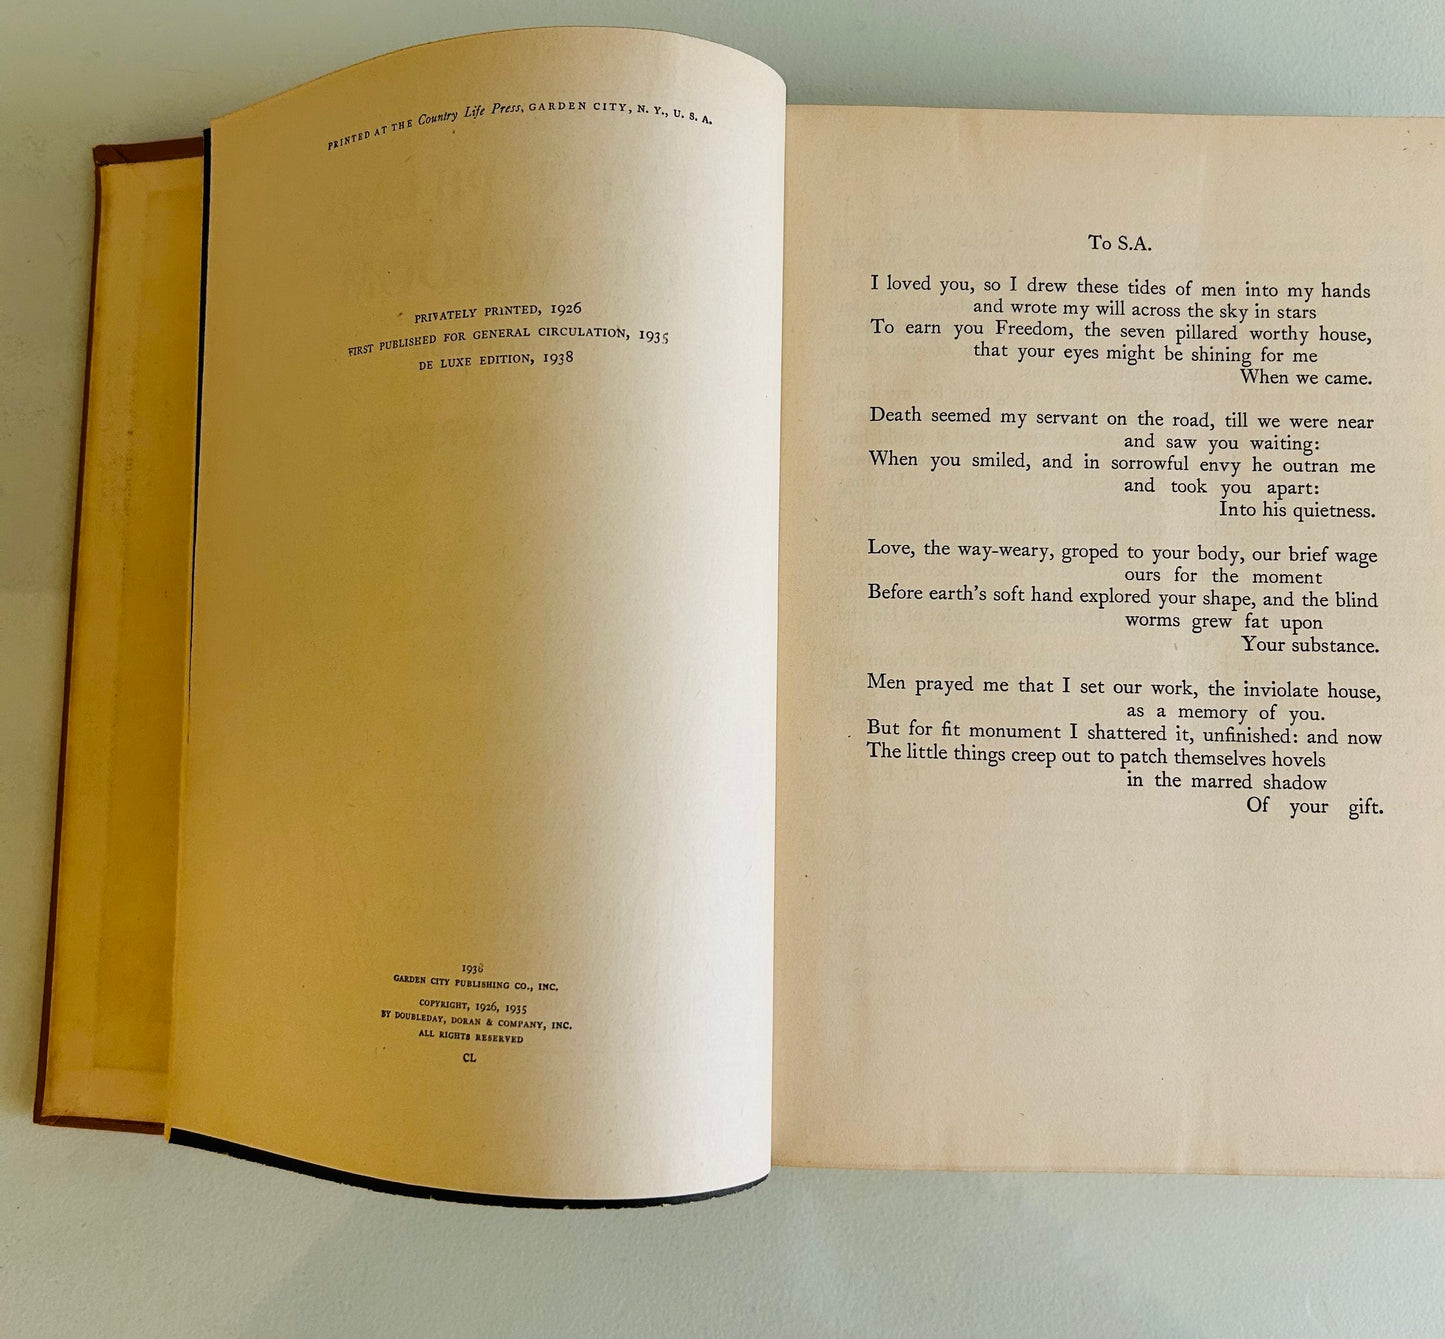 PRINTED AT THE Country Life Press, GARDEN CITY, N. Y., U. S. A.
PRIVATELY PRINTED, 1926
FIRST PUBLISHED FOR GENERAL CIRCULATION, 1935
DE LUXE EDITION, 1938
1938
GARDEN CITY PUBLISHING CO., INC.
COPYRIGHT, 1926, 1935
BY DOUBLEDAY, DORAN & COMPANY, INC.
ALL RIGHTS RESERVED
CL
To S.A.
I loved you, so I drew these tides of men into my hands
and wrote my will across the sky in stars
To earn you Freedom, the seven pillared worthy house,
that your eyes might be shining for me
When we came.
Death seemed my servant on the road, till we were near
and saw you waiting:
When you smiled, and in sorrowful envy he outran me
and took you apart:
Into his quietness.
Love, the way-weary, groped to your body, our brief wage
ours for the moment
Before earth's soft hand explored your shape, and the blind
worms grew fat upon
Your substance.
Men prayed me that I set our work, the inviolate house,
as a memory of you.
But for fit monument I shattered it, unfinished: and now
The little things creep out to patch themselves hovels
in the marred shadow
Of your gift.